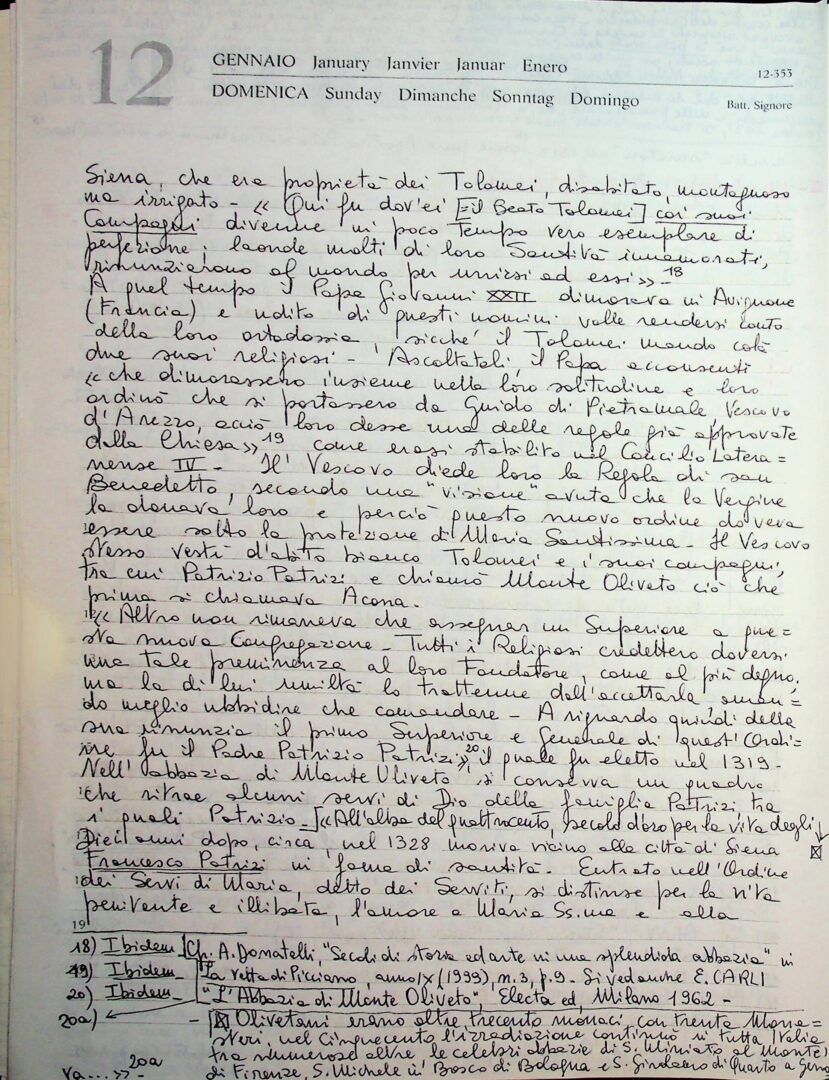 12
GENNAIO January Janvier Januar Enero
12-353
DOMENICA Sunday Dimanche Sonntag Domingo
Batt. Signore
Siena, che era proprietà dei Tolomei, disabitato, montagnoso
ma irrigato - « Qui fu dov'ei [= il Beato Tolomei] coi suoi
Compagni divenne in poco tempo vero esemplare di
perfezione; laonde molti di loro Santità innamorati,
rinunziarono al mondo per unirsi ad essi »- 18
A quel tempo il Papa Giovanni XXII dimorava in Avignone
(Francia) e udito di questi uomini volle rendersi conto
della loro ortodossia, sicché il Tolomei mandò colà
due suoi religiosi - Ascoltateli, il Papa acconsentì
« che dimorassero insieme nella loro solitudine e loro
ordinò che si portassero da Guido di Pietramale Vescovo
d'Arezzo, acciò loro desse una delle regole già approvate
dalla Chiesa » 19 come erasi stabilito nel Concilio Latera=
nense IV - Il Vescovo diede loro la Regola di san
Benedetto, secondo una "visione" avuta che la Vergine
la donava loro e perciò questo nuovo ordine doveva
essere sotto la protezione di Maria Santissima - Il Vescovo
stesso vestì d'abito bianco Tolomei e i suoi compagni,
tra cui Patrizio Patrizi e chiamò Monte Oliveto ciò che
prima si chiamava Acona.
« Altro non rimaneva che assegnar un Superiore a que=
sta nuova Congregazione - Tutti i Religiosi credettero doversi
una tale preminenza al loro Fondatore, come al più degno,
ma la di lui umiltà lo trattenne dall'accettarla aman=
do meglio ubbidire che comandare - A riguardo quindi della
sua rinunzia il primo Superiore e Generale di quest'Ordi=
ne fu il Padre Patrizio Patrizi », 20 il quale fu eletto nel 1319 -
Nell'abbazia di Monte Oliveto si conserva un quadro
che ritrae alcuni servi di Dio della famiglia Patrizi, tra
i quali Patrizio - [«All'alba del quattrocento, secolo d'oro per la vita degli
Dieci anni dopo, circa, nel 1328 moriva vicino alla città di Siena
Francesco Patrizi in fama di santità. Entrato nell'Ordine
dei Servi di Maria, detto dei Serviti, si distinse per la vita
penitente e illibata, l'amore a Maria Ss.ma e alla
19
18) Ibidem [Cfr. A. Donatelli, "Secoli di storia ed arte in una splendida abbazia" in
19) Ibidem La vetta di Picciano, anno IX (1999), n. 3, p. 9. Si veda anche E. CARLI
20) Ibidem - "L'Abbazia di Monte Oliveto", Electa ed, Milano 1962 -
20a) - [Olivetani erano oltre trecento monaci, con trenta Mona=
steri, nel Cinquecento l'irradiazione continuò in tutta Italia
tra numerose altre le celebri abbazie di S. Miniato al Monte)
va... »- 20a di Firenze, S. Michele in Bosco di Bologna e S. Girolamo di Quarto a Geno